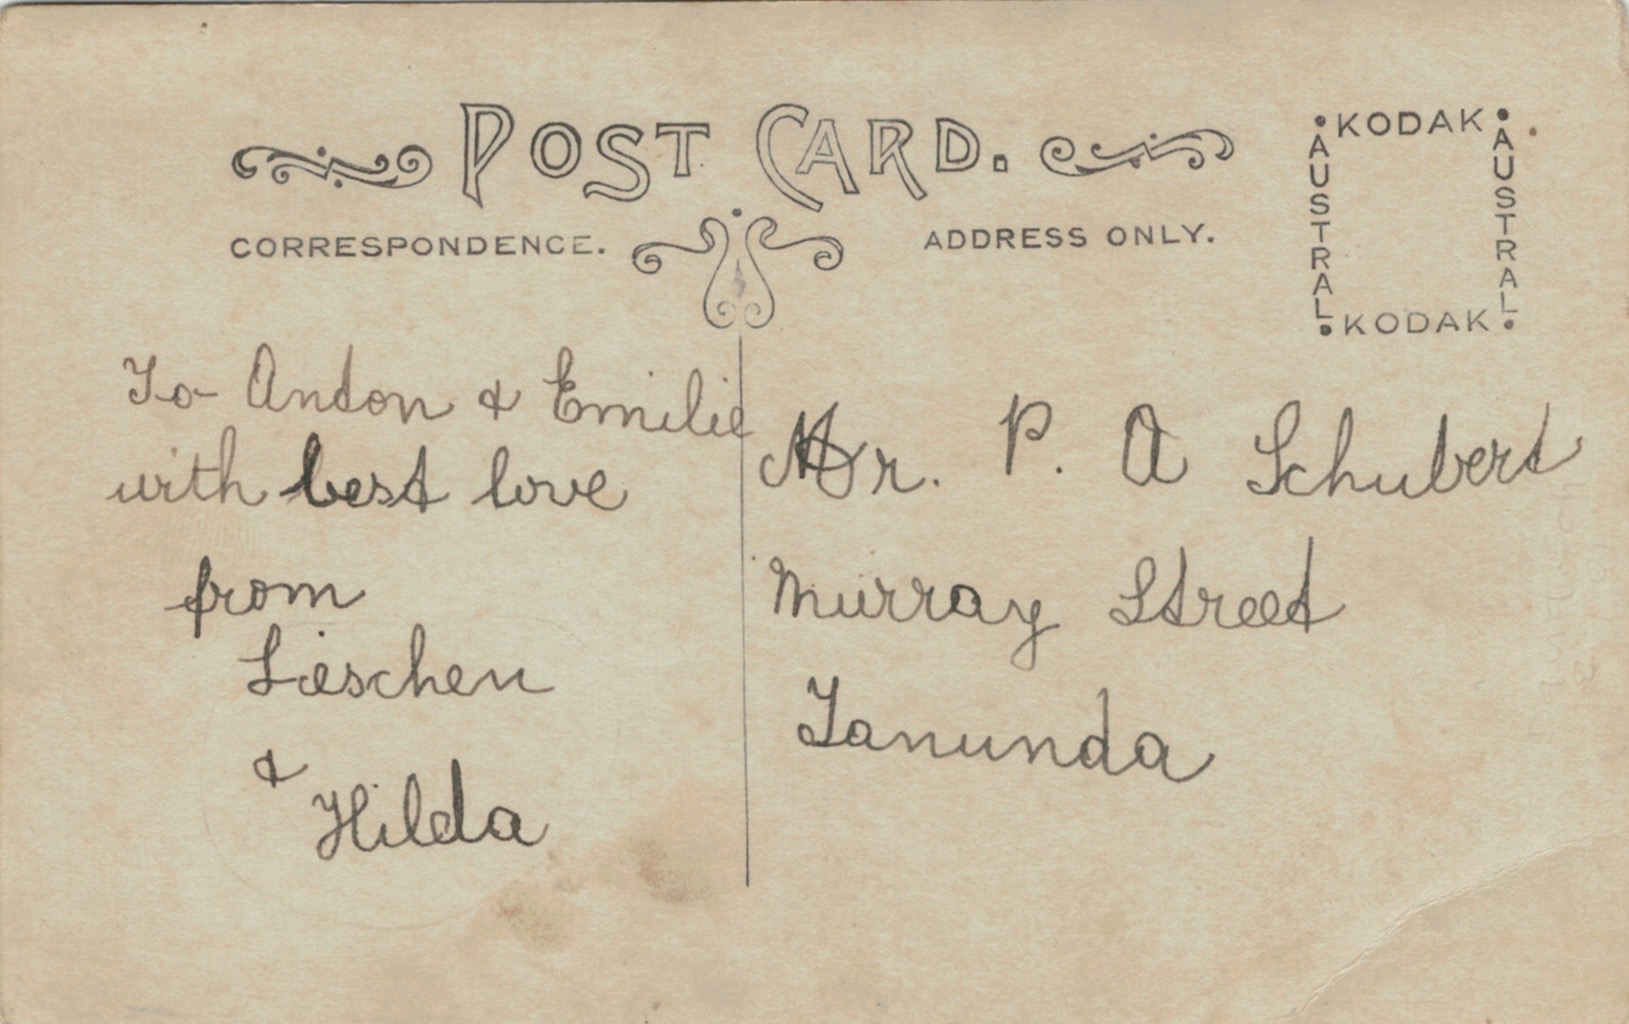 POST CARD.
CORRESPONDENCE.
ADDRESS ONLY.
KODAK
AUSTRAL
AUSTRAL
KODAK
To Andon & Emilie
with best love
from
Lieschen
& Hilda
Mr. P. A Schubert
Murray Street
Tanunda